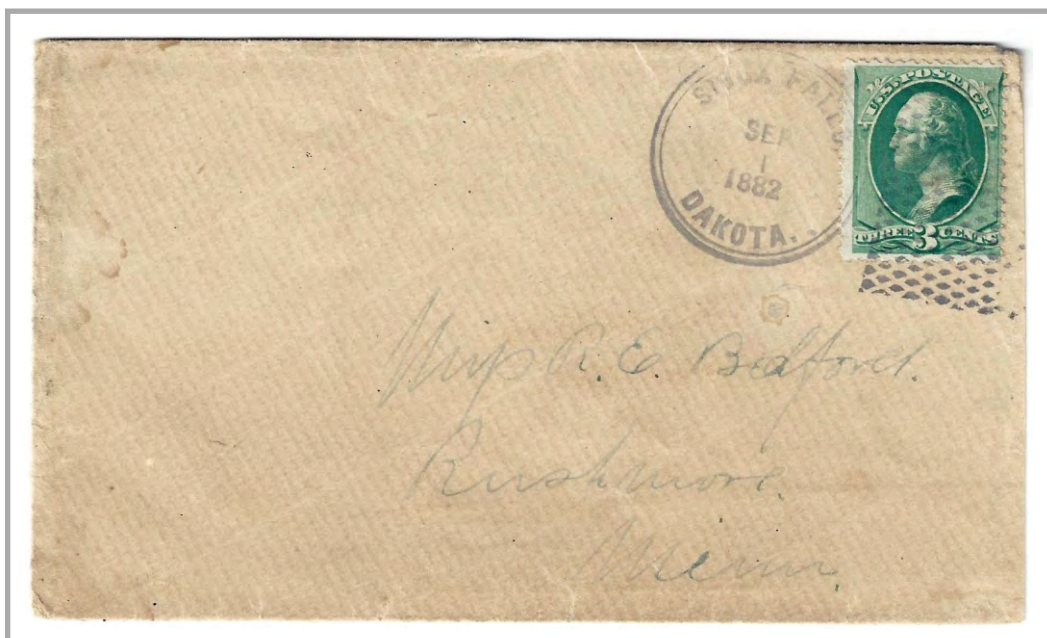 SIOUX FALLS
SEP
1
1882
DAKOTA.
U.S. POSTAGE
THREE 3 CENTS
Miss R. E. Bedford.
Rushmore.
Minn.